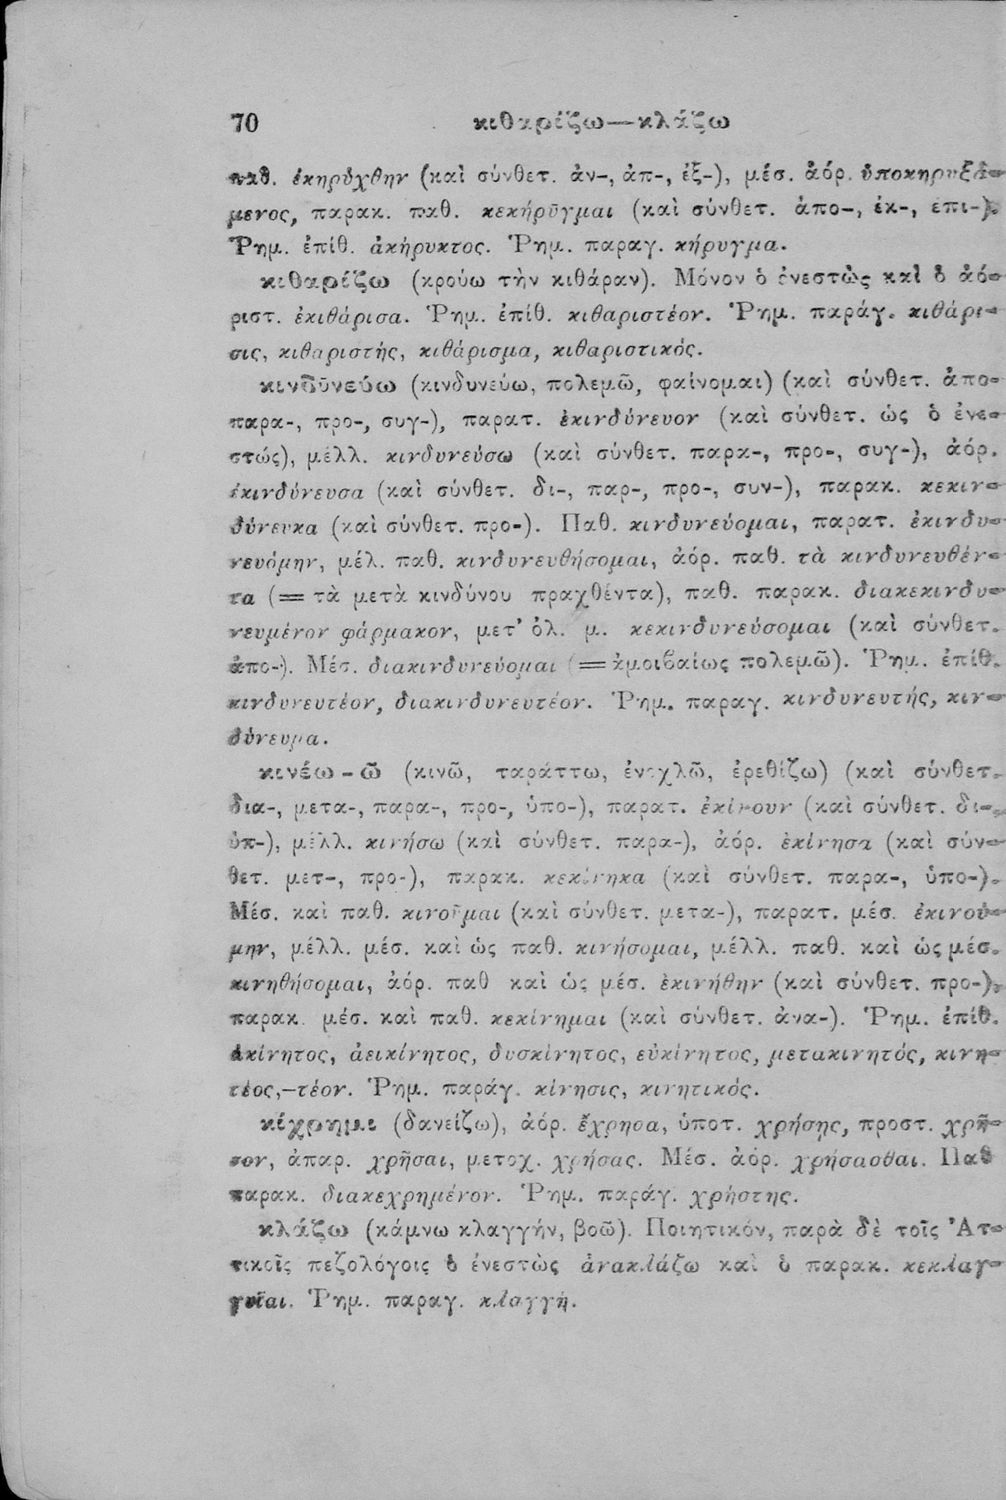 70 κιθαρίζω—κλάζω
παθ. ἐκηρύχθην (καὶ σύνθετ. ἀν-, ἀπ-, ἐξ-), μέσ. ἀόρ. ὑποκηρυξά-
μενος, παρακ. παθ. κεκήρῡγμαι (καὶ σύνθετ. ἀπο-, ἐκ-, ἐπι-).
Ῥημ. ἐπίθ. ἀκήρυκτος. Ῥημ. παραγ. κήρυγμα.
κιθαρίζω (κρούω τὴν κιθάραν). Μόνον ὁ ἐνεστὼς καὶ ὁ ἀό-
ριστ. ἐκιθάρισα. Ῥημ. ἐπίθ. κιθαριστέον. Ῥημ. παράγ. κιθάρι-
σις, κιθαριστής, κιθάρισμα, κιθαριστικός.
κινδῡνεύω (κινδυνεύω, πολεμῶ, φαίνομαι) (καὶ σύνθετ. ἀπο-
παρα-, προ-, συγ-), παρατ. ἐκινδύνευον (καὶ σύνθετ. ὡς ὁ ἐνε-
στώς), μέλλ. κινδυνεύσω (καὶ σύνθετ. παρα-, προ-, συγ-), ἀόρ.
ἐκινδύνευσα (καὶ σύνθετ. δι-, παρ-, προ-, συν-), παρακ. κεκιν-
δύνευκα (καὶ σύνθετ. προ-). Παθ. κινδυνεύομαι, παρατ. ἐκινδυ-
νευόμην, μέλ. παθ. κινδυνευθήσομαι, ἀόρ. παθ. τὰ κινδυνευθέν-
τα (= τὰ μετὰ κινδύνου πραχθέντα), παθ. παρακ. διακεκινδυ-
νευμένον φάρμακον, μετ' ὀλ. μ. κεκινδυνεύσομαι (καὶ σύνθετ.
ἀπο-). Μέσ. διακινδυνεύομαι (= ἀμοιβαίως πολεμῶ). Ῥημ. ἐπίθ.
κινδυνευτέον, διακινδυνευτέον. Ῥημ. παραγ. κινδυνευτής, κιν-
δύνευμα.
κινέω-ῶ (κινῶ, ταράττω, ἐνοχλῶ, ἐρεθίζω) (καὶ σύνθετ.
δια-, μετα-, παρα-, προ-, ὑπο-), παρατ. ἐκίνουν (καὶ σύνθετ. δι-,
ὑπ-), μέλλ. κινήσω (καὶ σύνθετ. παρα-), ἀόρ. ἐκίνησα (καὶ σύν-
θετ. μετ-, προ-), παρακ. κεκίνηκα (καὶ σύνθετ. παρα-, ὑπο-).
Μέσ. καὶ παθ. κινοῦμαι (καὶ σύνθετ. μετα-), παρατ. μέσ. ἐκινού-
μην, μέλλ. μέσ. καὶ ὡς παθ. κινήσομαι, μέλλ. παθ. καὶ ὡς μέσ.
κινηθήσομαι, ἀόρ. παθ καὶ ὡς μέσ. ἐκινήθην (καὶ σύνθετ. προ-),
παρακ. μέσ. καὶ παθ. κεκίνημαι (καὶ σύνθετ. ἀνα-). Ῥημ. ἐπίθ.
ἀκίνητος, ἀεικίνητος, δυσκίνητος, εὐκίνητος, μετακινητός, κινη-
τέος,-τέον. Ῥημ. παράγ. κίνησις, κινητικός.
κίχρημι (δανείζω), ἀόρ. ἔχρησα, ὑποτ. χρήσῃς, προστ. χρῆ-
σον, ἀπαρ. χρῆσαι, μετοχ. χρήσας. Μέσ. ἀόρ. χρήσασθαι. Παθ
παρακ. διακεχρημένον. Ῥημ. παράγ. χρήστης.
κλάζω (κάμνω κλαγγήν, βοῶ). Ποιητικόν, παρὰ δὲ τοῖς Ἀτ-
τικοῖς πεζολόγοις ὁ ἐνεστὼς ἀνακλάζω καὶ ὁ παρακ. κεκλαγ-
γυῖαι. Ῥημ. παραγ. κλαγγή.